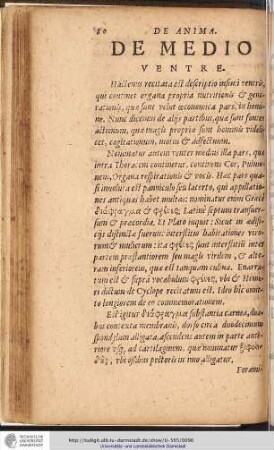 80 DE ANIMA.
DE MEDIO
VENTRE.
Hactenus recitata est descriptio infimi ventris,
qui continet organa propria nutritionis & gene-
rationis, quæ sunt velut œconomica pars in homi-
ne. Nunc dicemus de alijs partibus, quæ sunt fontes
actionum, quæ magis propriæ sunt hominis videli-
cet, cogitationum, motus & adfectuum.
Nominatur autem venter medius illa pars, quæ
intra Thoracem continetur, continens Cor, Pulmo-
nem, Organa respirationis & vocis. Hæc pars qua-
si inuoluta est panniculo seu lacerto, qui appellatio-
nes antiquas habet multas: nominatur enim Græcè
διάφραγμα & φρένες Latinè septum transuer-
sum & præcordia. Et Plato inquit: Sicut in ædi-
ficijs distinctæ fuerunt interstitio habitationes viro-
rum & mulierum: ita φρένες sunt interstitium inter
partem præstantiorem seu magis virilem, & alte-
ram inferiorem, quæ est tanquam culina. Enarra-
tum est & suprà vocabulum φρένες, vbi & Home-
ri dictum de Cyclope recitatum est. Ideo hîc omit-
to longiorem de eo commemorationem.
Est igitur διάφραγμα substantia carnea, dua-
bus contexta membranis, dorso circa duodecimum
spondylum alligata, ascendens autem in parte ante-
riore vsq; ad cartilaginem, quæ nominatur ξιφοει-
δής, vbi ossibus pectoris in imo alligatur.
Forami-
http://tudigit.ulb.tu-darmstadt.de/show/
Universitäts- und Landesbibliothek Darmstadt